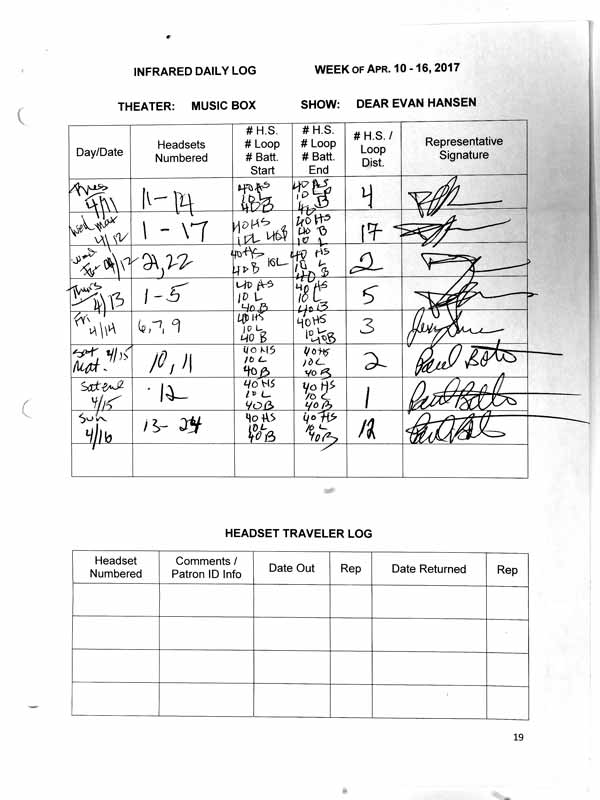 INFRARED DAILY LOG WEEK OF APR. 10 - 16, 2017
THEATER: MUSIC BOX SHOW: DEAR EVAN HANSEN
Day/Date Headsets Numbered # H.S. # Loop # Batt. Start # H.S. # Loop # Batt. End # H.S. / Loop Dist. Representative Signature
Tues 4/11 11-14 40HS 10L 40B 40HS 10L 40B 4
Wed Mat 4/12 1-17 40HS 10L 40B 40HS 40B 10L 17
Wed 4/12 21,22 40HS 40B 10L 40HS 10L 40B 2
Thurs 4/13 1-5 40HS 10L 40B 40HS 10L 40B 5
Fri 4/14 6,7,9 40HS 10L 40B 40HS 10L 40B 3
Sat Mat. 4/15 10,11 40HS 10L 40B 40HS 10L 40B 2 Paul
Sat eve 4/15 12 40HS 10L 40B 40HS 10L 40B 1 Paul
Sun 4/16 13-24 40HS 10L 40B 40HS 10L 40B 12 Paul
HEADSET TRAVELER LOG
Headset Numbered Comments / Patron ID Info Date Out Rep Date Returned Rep
19